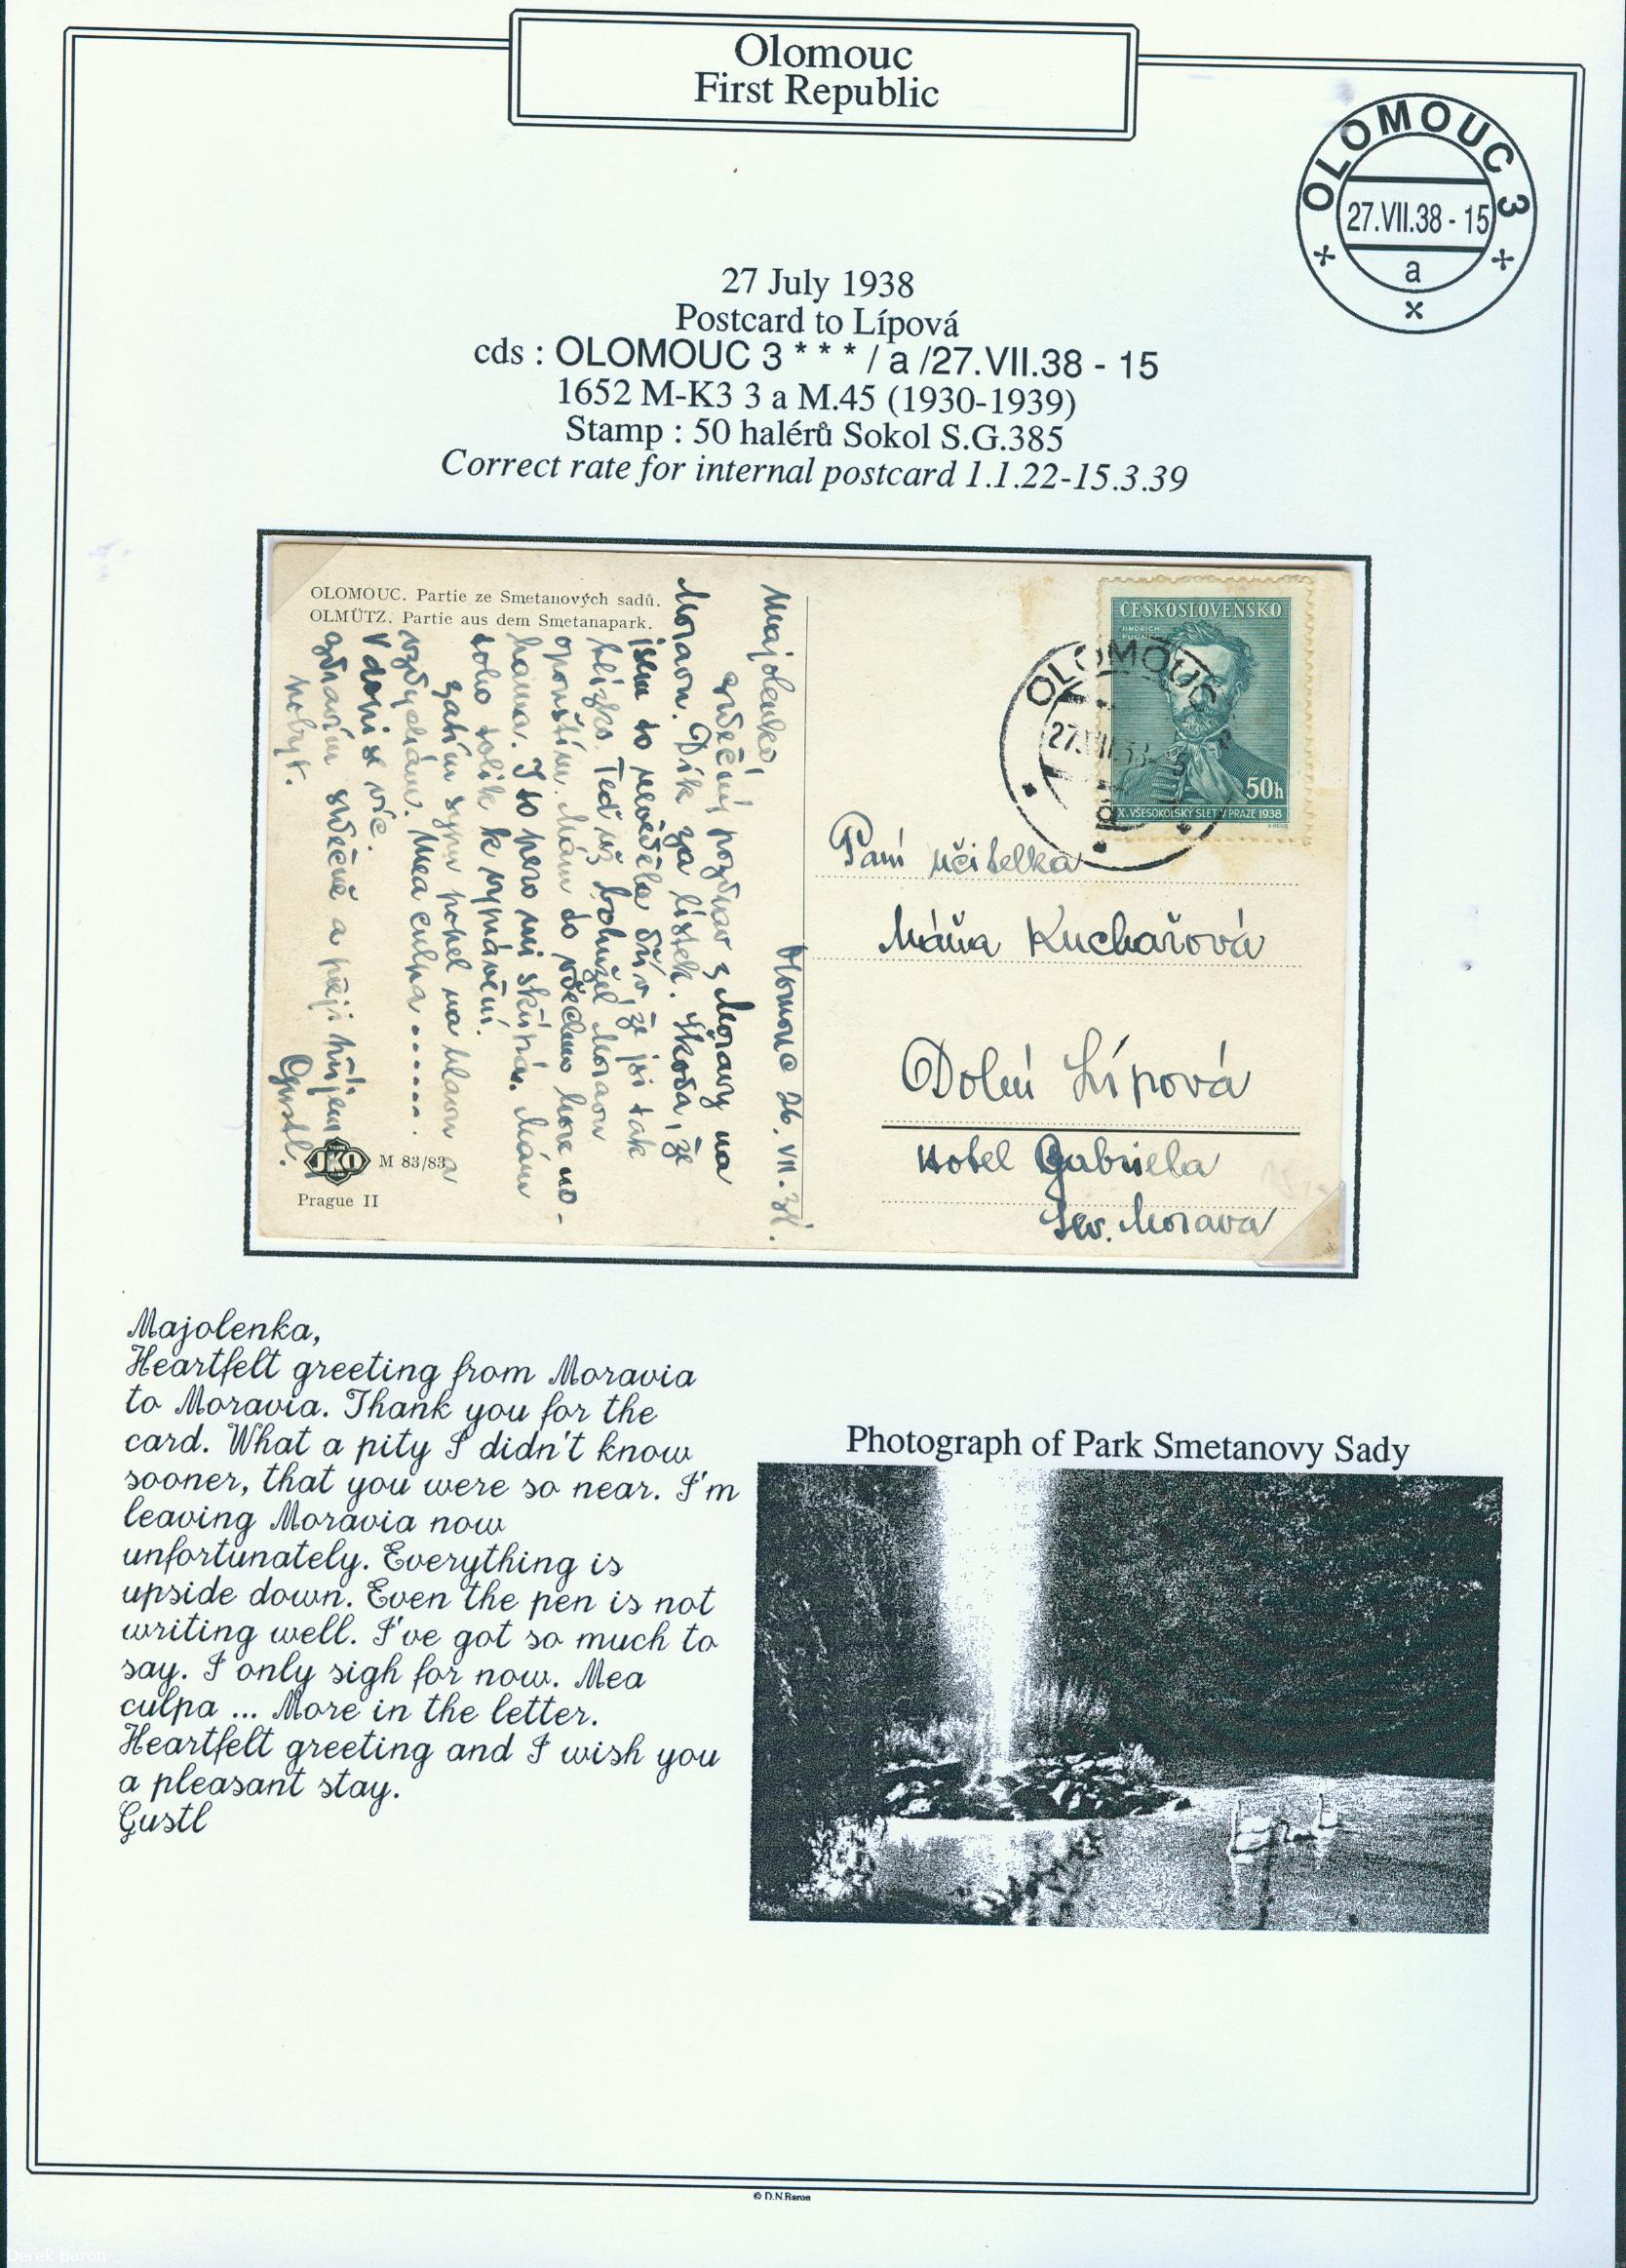 Olomouc
First Republic
OLOMOUC 3
27.VII.38 - 15
a
27 July 1938
Postcard to Lípová
cds : OLOMOUC 3 * * * / a /27.VII.38 - 15
1652 M-K3 3 a M.45 (1930-1939)
Stamp : 50 halérů Sokol S.G.385
Correct rate for internal postcard 1.1.22-15.3.39
OLOMOUC. Partie ze Smetanových sadů.
OLMÜTZ. Partie aus dem Smetanapark.
Olomouc 26. VII. 38.
Majolenko,
srdečný pozdrav z Moravy na
Moravu. Dík za lístek. Škoda, že
jsem to nevěděla dřív, že jsi tak
blízko. Teď už bohužel Moravu
opouštím. Mám to všechno hore no-
hama. I to pero mi škrtá. Mám
toho tolik k vyprávění.
Zatím sypu popel na hlavu a
vzdychám. Mea culpa ......
V dopise víc.
Zdravím srdečně a přeji příjemný
pobyt.
Gustl.
JKO
M 83/83
Prague II
ČESKOSLOVENSKO
JINDŘICH
FÜGNER
50h
X. VŠESOKOLSKÝ SLET V PRAZE 1938
OLOMOUC
27.VII.38-15
a
Paní učitelka
Máňa Kuchařová
Dolní Lípová
Hotel Gabriela
Sev. Morava
Majolenka,
Heartfelt greeting from Moravia
to Moravia. Thank you for the
card. What a pity I didn't know
sooner, that you were so near. I'm
leaving Moravia now
unfortunately. Everything is
upside down. Even the pen is not
writing well. I've got so much to
say. I only sigh for now. Mea
culpa ... More in the letter.
Heartfelt greeting and I wish you
a pleasant stay.
Gustl
Photograph of Park Smetanovy Sady
© D.N.Baron
Derek Baron